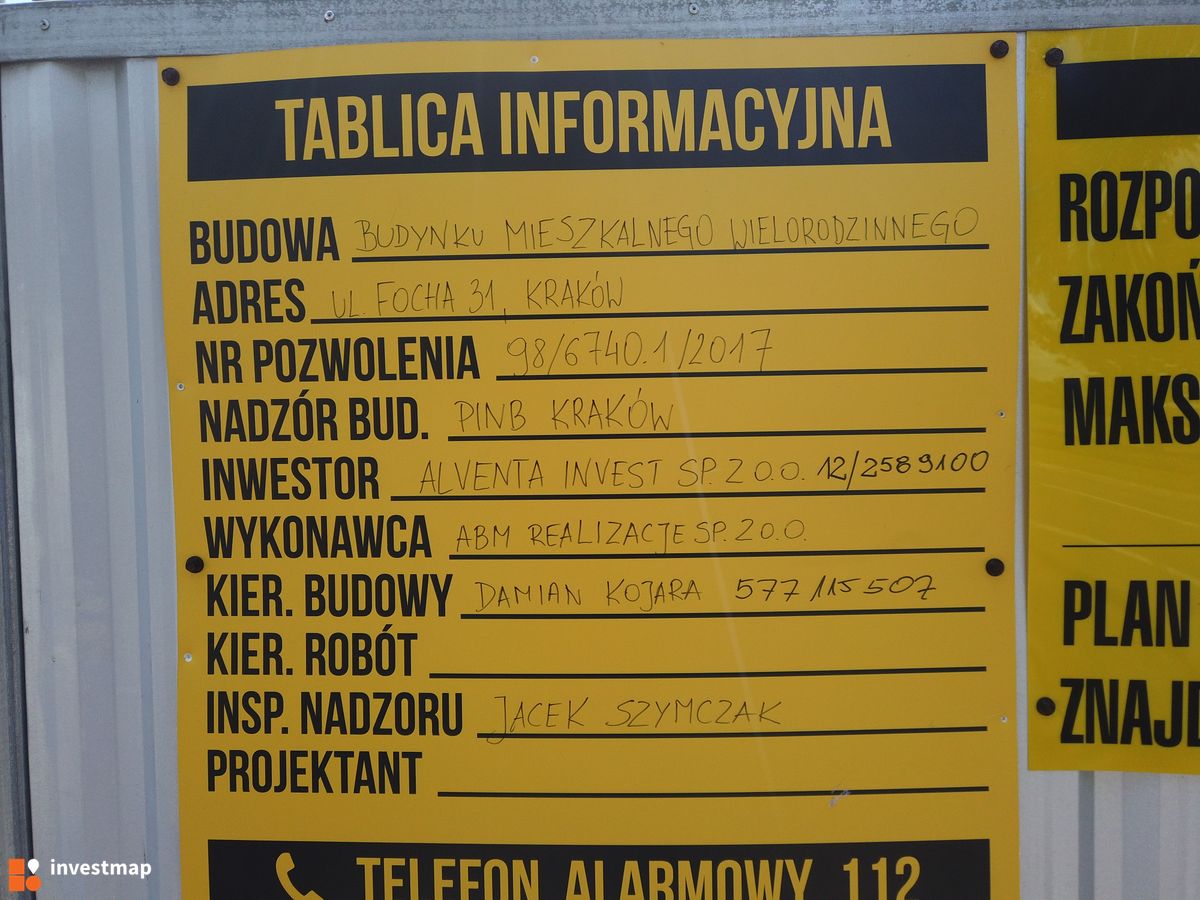 TABLICA INFORMACYJNA
BUDOWA BUDYNKU MIESZKALNEGO WIELORODZINNEGO
ADRES UL. FOCHA 31, KRAKÓW
NR POZWOLENIA 98/6740.1/2017
NADZÓR BUD. PINB KRAKÓW
INWESTOR ALVENTA INVEST SP. Z O.O. 12/2589100
WYKONAWCA ABM REALIZACJE SP. Z O.O.
KIER. BUDOWY DAMIAN KOJARA 577 115 507
KIER. ROBÓT
INSP. NADZORU JACEK SZYMCZAK
PROJEKTANT
TELEFON ALARMOWY 112
ROZPO
ZAKOŃ
MAKS
PLAN
ZNAJD
investmap